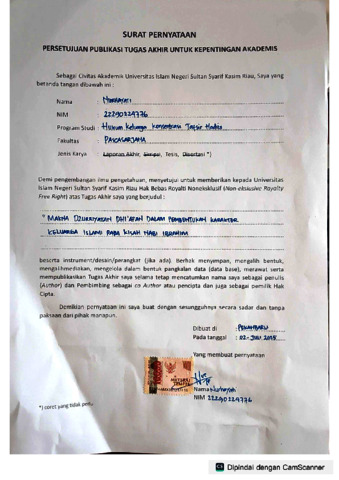 SURAT PERNYATAAN
PERSETUJUAN PUBLIKASI TUGAS AKHIR UNTUK KEPENTINGAN AKADEMIS
Sebagai Civitas Akademis Universitas Islam Negeri Sultan Syarif Kasim Riau, Saya yang
bertanda tangan dibawah ini :
Nama : Nurhayati
NIM : 22290224776
Program Studi : Hukum Keluarga Konsentrasi Tafsir Hadis
Fakultas : PASCASARJANA
Jenis Karya : Laporan Akhir, Skripsi, Tesis, Disertasi *)
Demi pengembangan ilmu pengetahuan, menyetujui untuk memberikan kepada Universitas
Islam Negeri Sultan Syarif Kasim Riau Hak Bebas Royalti Noneksklusif (Non-eksklusive Royalty
Free Right) atas Tugas Akhir saya yang berjudul:
" MAKNA DZURRIYATAN DHI'AFAN DALAM PEMBENTUKAN KARAKTER
KELUARGA ISLAMI PADA KISAH NABI IBRAHIM
beserta instrument/desain/perangkat (jika ada). Berhak menyimpan, mengalih bentuk,
mengalihmediakan, mengelola dalam bentuk pangkalan data (data base), merawat serta
mempublikasikan Tugas Akhir saya selama tetap mencatumkan nama saya sebagai penulis
(Author) dan Pembimbing sebagai co Author atau pencipta dan juga sebagai pemilik Hak
Cipta.
Demikian pernyataan ini saya buat dengan sesungguhnya secara sadar dan tanpa
paksaan dari pihak manapun.
Dibuat di : PEKANBARU
Pada tanggal : 02-Juli 2025
Yang membuat pernyataan
METERAI
TEMPEL
Nama: Nurhayati
NIM 22290224776
*) coret yang tidak perlu
CS Dipindai dengan CamScanner